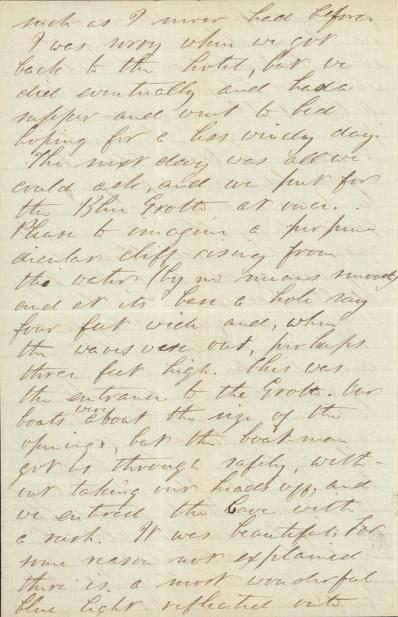 such as I never had before.
I was sorry when we got
back to the hotel, but we
did eventually and had a
supper and went to bed
hoping for a less windy day.
The next day was all we
could ask, and we put for
the Blue Grotto at once.
Please to imagine a perpen
dicular cliff rising from
the water (by no means smooth)
and at its base a hole say
four feet wide and, when
the waves were out, perhaps
three feet high. This was
the entrance to the Grotto. Our
boats were about the size of the
opening, but the boatman
got us through safely, with-
out taking our heads off, and
we entered the Cave with
a rush. It was beautiful. For
some reason not explained
there is a most wonderful
blue light reflected into